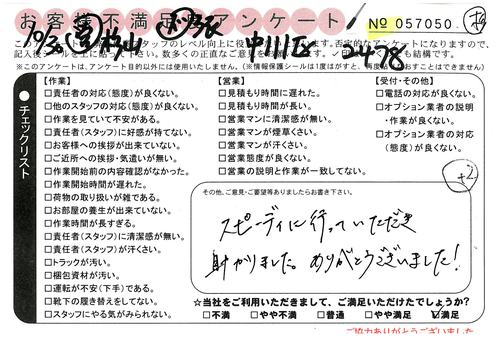 お客様不満足度アンケート
№ 057050
スタッフのレベル向上に役
否定的なアンケートになりますので、
記入後シールを
数多くの正直なご意見
も結構です。
※このアンケートは、アンケート目的以外には使用いたしません。(※情報保護シールは1度はがすと、再度はりなおすことはできません)
●チェックリスト
【作業】
□責任者の対応(態度)が良くない。
□他のスタッフの対応(態度)が良くない。
□作業を見ていて不安がある。
□責任者(スタッフ)に好感が持てない。
□お客様への挨拶が出来ていない。
□ご近所への挨拶・気遣いが無い。
□作業開始前の内容確認がなかった。
□作業開始時間が遅れた。
□荷物の取り扱いが雑である。
□お部屋の養生が出来ていない。
□作業時間が長すぎる。
□責任者(スタッフ)に清潔感が無い。
□責任者(スタッフ)が汗くさい。
□トラックが汚い。
□梱包資材が汚い。
□運転が不安(下手)である。
□靴下の履き替えをしてない。
□スタッフにやる気がみられない。
【営業】
□見積もり時間に遅れた。
□見積もり時間が長い。
□営業マンに清潔感が無い。
□営業マンが煙草くさい。
□営業マンが汗くさい。
□営業態度が良くない。
□営業の説明と作業が一致してない。
【受付・その他】
□電話の対応が良くない。
□オプション業者の説明
・作業が良くない。
□オプション業者の対応
(態度)が良くない。
+2
その他、ご意見・ご要望等ありましたらお書き下さい。
スピーディに行っていただき
助かりました。ありがとうございました!
☆当社をご利用いただきまして、ご満足いただけたでしょうか?
□不満 □やや不満 □普通 □やや満足 ☑満足
ご協力ありがとうございました